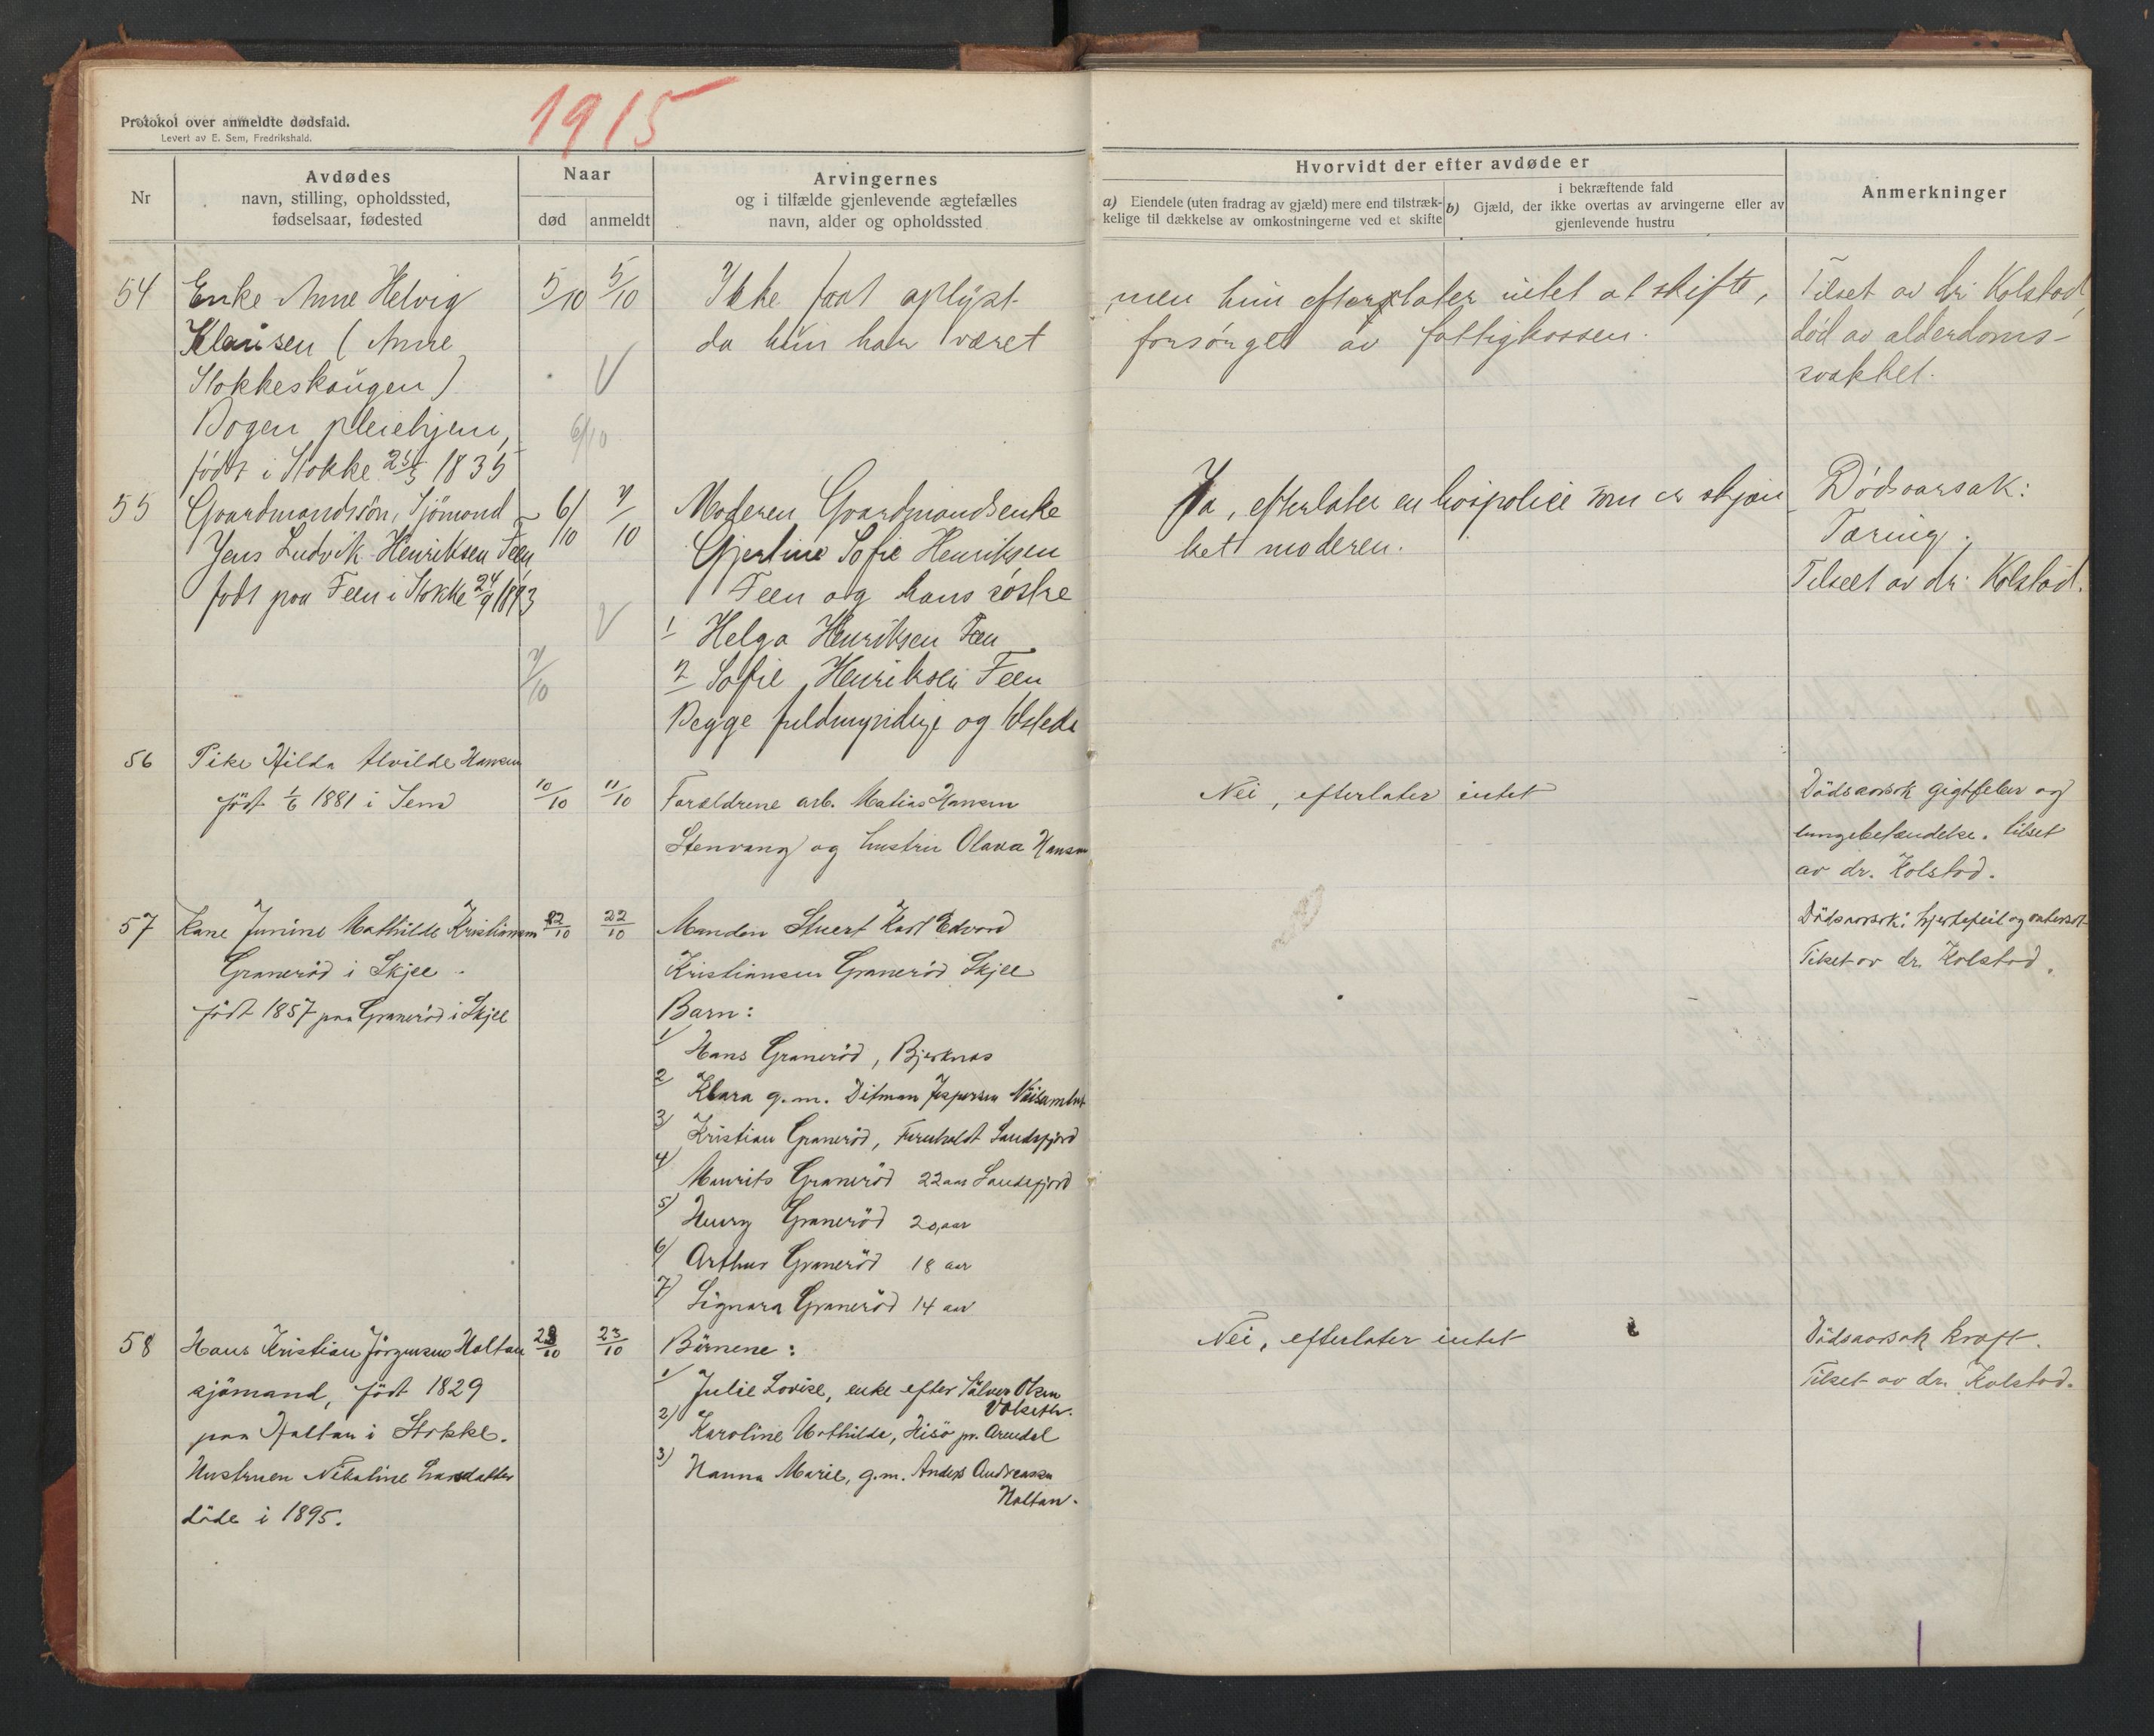 1915
Protokol over anmeldte dødsfald.
Levert av E. Sem, Fredrikshald.
Nr
Avdødes
navn, stilling, opholdssted,
fødselsaar, fødested
Naar
død
anmeldt
Arvingernes
og i tilfælde gjenlevende ægtefælles
navn, alder og opholdssted
Hvorvidt der efter avdøde er
a) Eiendele (uten fradrag av gjæld) mere end tilstræk-
kelige til dækkelse av omkostningerne ved et skifte
i bekræftende fald
b) Gjæld, der ikke overtas av arvingerne eller av
gjenlevende hustru
Anmerkninger
54
Enke Anne Helvig
Klausen (Anne
Stokkeskaugen)
Bogen pleiehjem,
født i Stokke 1835
5/10
5/10
6/10
Ikke faat oplyst
da hun har været
men hun efterlater intet at skifte,
forsørget av fattigkassen.
Tilset av dr Kolstad
død av alderdoms-
svakhet.
55
Gaardmandssøn, Sjømand
Jens Ludvik Henriksen Feen
født paa Feen i Stokke 24/9 1893
6/10
7/10
7/10
Moderen Gaardmandsenke
Gjertine Sofie Henriksen
Feen og hans søstre
1 Helga Henriksen Feen
2 Sofie Henriksen Feen
Begge fuldmyndige og tilstede
Ja, efterlater en livspolice som er skjæn
ket moderen.
Dødsaarsak:
Tæring.
Tilseet av dr. Kolstad.
56
Pike Hilda Alvilde Hansen
født 1/6 1881 i Sem
10/10
11/10
Forældrene arb. Matias Hansen
Stenvang og hustru Olava Hansen
Nei, efterlater intet
Dødsaarsak gigtfeber og
lungebetændelse. tilset
av dr. Kolstad.
57
Kone Junine Mathilde Kristiansen
Granerød i Skjee
født 1857 paa Granerød i Skjee
22/10
22/10
Manden Stuert Karl Edvard
Kristiansen Granerød Skjee
Barn:
1/ Hans Granerød, Bjerknæs
2 Klara g.m. Ditman Jespersen
3/ Kristian Granerød, Furuholdt Sandefjord
4/ Maurits Granerød 22 aar Sandefjord
5/ Henry Granerød 20 aar
6/ Arthur Granerød 18 aar
7/ Signora Granerød 14 aar
Dødsaarsak: hjertefeil og vatersot
Tilset av dr. Kolstad.
58
Hans Kristian Jørgensen Holtan
sjømand, født 1829
paa Holtan i Stokke.
Hustruen Nikoline Larsdatter
døde i 1895.
23/10
23/10
Børnene:
1/ Julie Lovise, enke efter Sølver Olsen
Volseth.
2/ Karoline Mathilde, Hisø pr. Arendal
3/ Hanna Marie, g.m. Anders Andreassen
Holtan.
Nei, efterlater intet
Dødsaarsak kræft.
Tilset av dr. Kolstad.